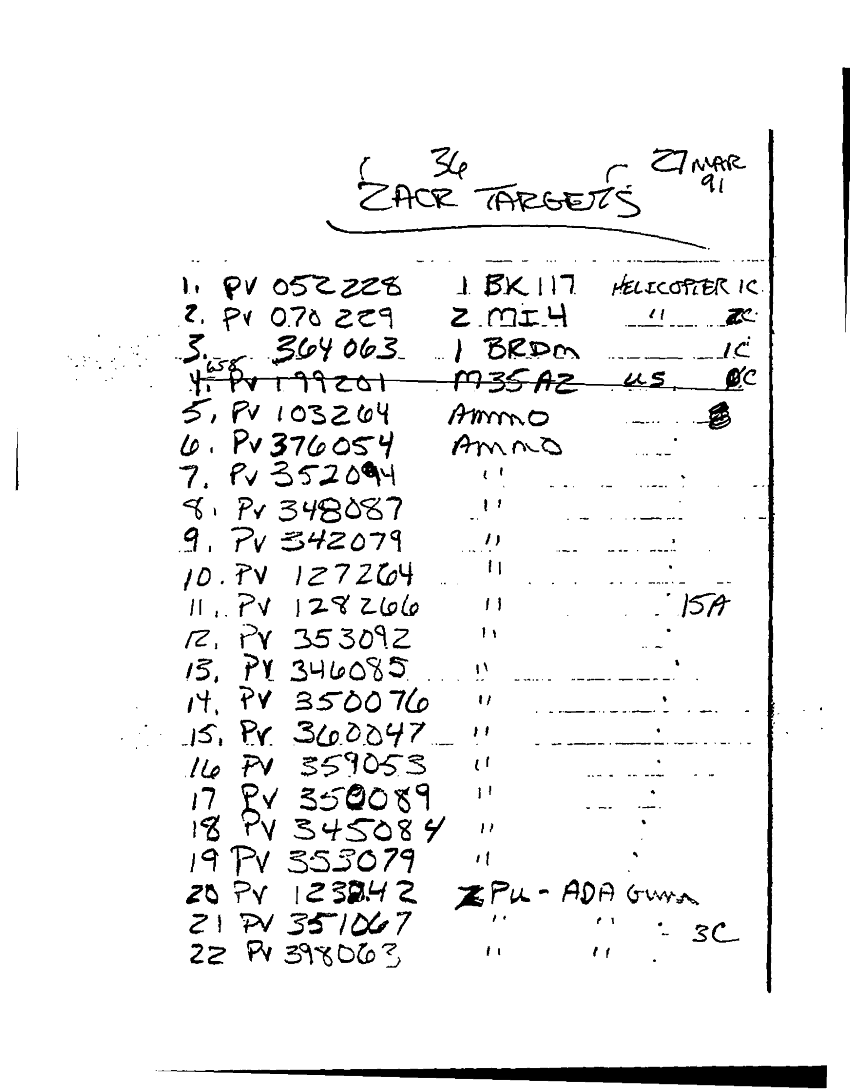 36
27 MAR 91
2ACR TARGETS
1. PV 052228 1 BK 117 HELICOPTER 1C
2. PV 070229 2 MI4 " 2C
3. 364063 1 BRDM 1C
658
4. PV 199201 M35A2 US C
5. PV 103264 AMMO
6. PV 376054 AMMO
7. PV 352094 "
8. PV 348087 "
9. PV 342079 "
10. PV 127264 "
11. PV 128266 " 15A
12. PV 353092 "
13. PV 346085 "
14. PV 350076 "
15. PV 360047 "
16 PV 359053 "
17 PV 350089 "
18 PV 345084 "
19 PV 353079 "
20 PV 123242 ZPU - ADA Guns
21 PV 351067 " " 3C
22 PV 398063 " "